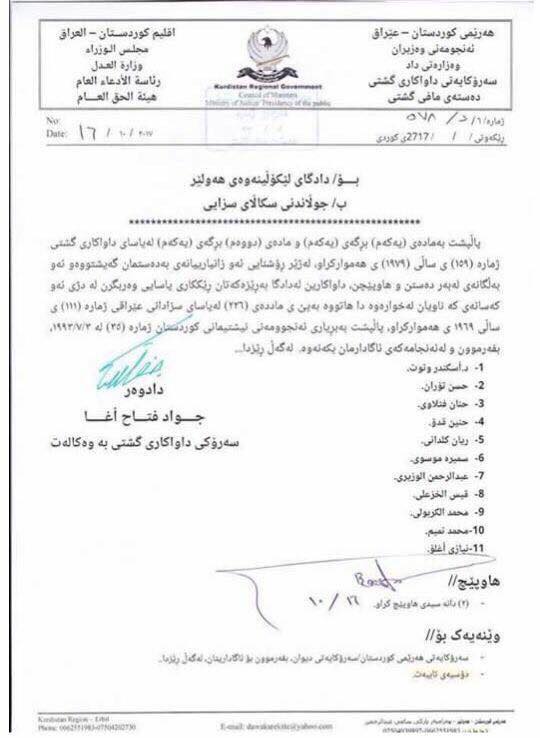 هەرێمی کوردستان – عێراق
ئەنجومەنی وەزیران
وەزارەتی داد
سەرۆکایەتی داواکاری گشتی
دەستەی مافی گشتی
Kurdistan Regional Government
Council of Ministers
Ministry of Justice Presidency of the public
اقليم كوردستـان – العراق
مجلس الـوزراء
وزارة العـدل
رئاسة الأدعاء العام
هيئة الحق العـــام
ژمارە/٦/د/ ٥٧٨
ڕێکەوتی/ / /2717ی کوردی
No:
Date: ١٦ / ١٠ / ٢٠١٧
بـــۆ/ دادگای لێکۆڵینەوەی هەولێر
ب/ جوڵاندنی سکاڵای سزایی
پاڵپشت بەمادەی (یەکەم) بڕگەی (یەکەم) و مادەی (دووەم) بڕگەی (یەکەم) لەیاسای داواکاری گشتی
ژمارە (١٥٩) ی ساڵی (١٩٧٩) ی هەموارکراو، لەژێر ڕۆشنایی ئەو زانیارییانەی بەدەستمان گەیشتووەو ئەو
بەڵگانەی لەبەر دەستن و هاوپێچن، داواکارین لەدادگا بەڕێزەکەتان ڕێککاری یاسایی وەربگرن لە دژی ئەو
کەسانەی کە ناویان لەخوارەوە دا هاتووە بەپێ ی ماددەی (٢٢٦) لەیاسای سزادانی عێراقی ژمارە (١١١) ی
ساڵی ١٩٦٩ ی هەموارکراو، پاڵپشت بەبڕیاری ئەنجوومەنی نیشتیمانی کوردستان ژمارە (٣٥) لە ١٩٩٣/٧/٣،
بفەرموون و لەئەنجامەکەی ئاگادارمان بکەنەوە. لەگەڵ ڕێزدا...
1- د.أسكندر وتوت.
2- حسن تۆران.
3- حنان فتلاوی.
4- حنین قدۆ.
5- ریان کلدانی.
6- سمیرە موسوی.
7- عبدالرحمن الوزیری.
8- قیس الخزعلی.
9- محمد الکربولی.
10- محمد تمیم.
11- نیازی أغلۆ.
دادوەر
جــــواد فتــاح أغــا
سەرۆکی داواکاری گشتی بە وەکالەت
١٦ / ١٠
هاوپێچ//
- (٢) دانە سیدی هاوپێچ کراو.
وێنەیەک بۆ//
- سەرۆکایەتی هەرێمی کوردستان/سەرۆکایەتی دیوان، بفەرموون بۆ ئاگاداریتان، لەگەڵ ڕێزدا..
- دۆسیەی تایبەت.
Kurdistan Region – Erbil
Phone: 0662551983-07504202730
E-mail: dawakarekite@yahoo.com